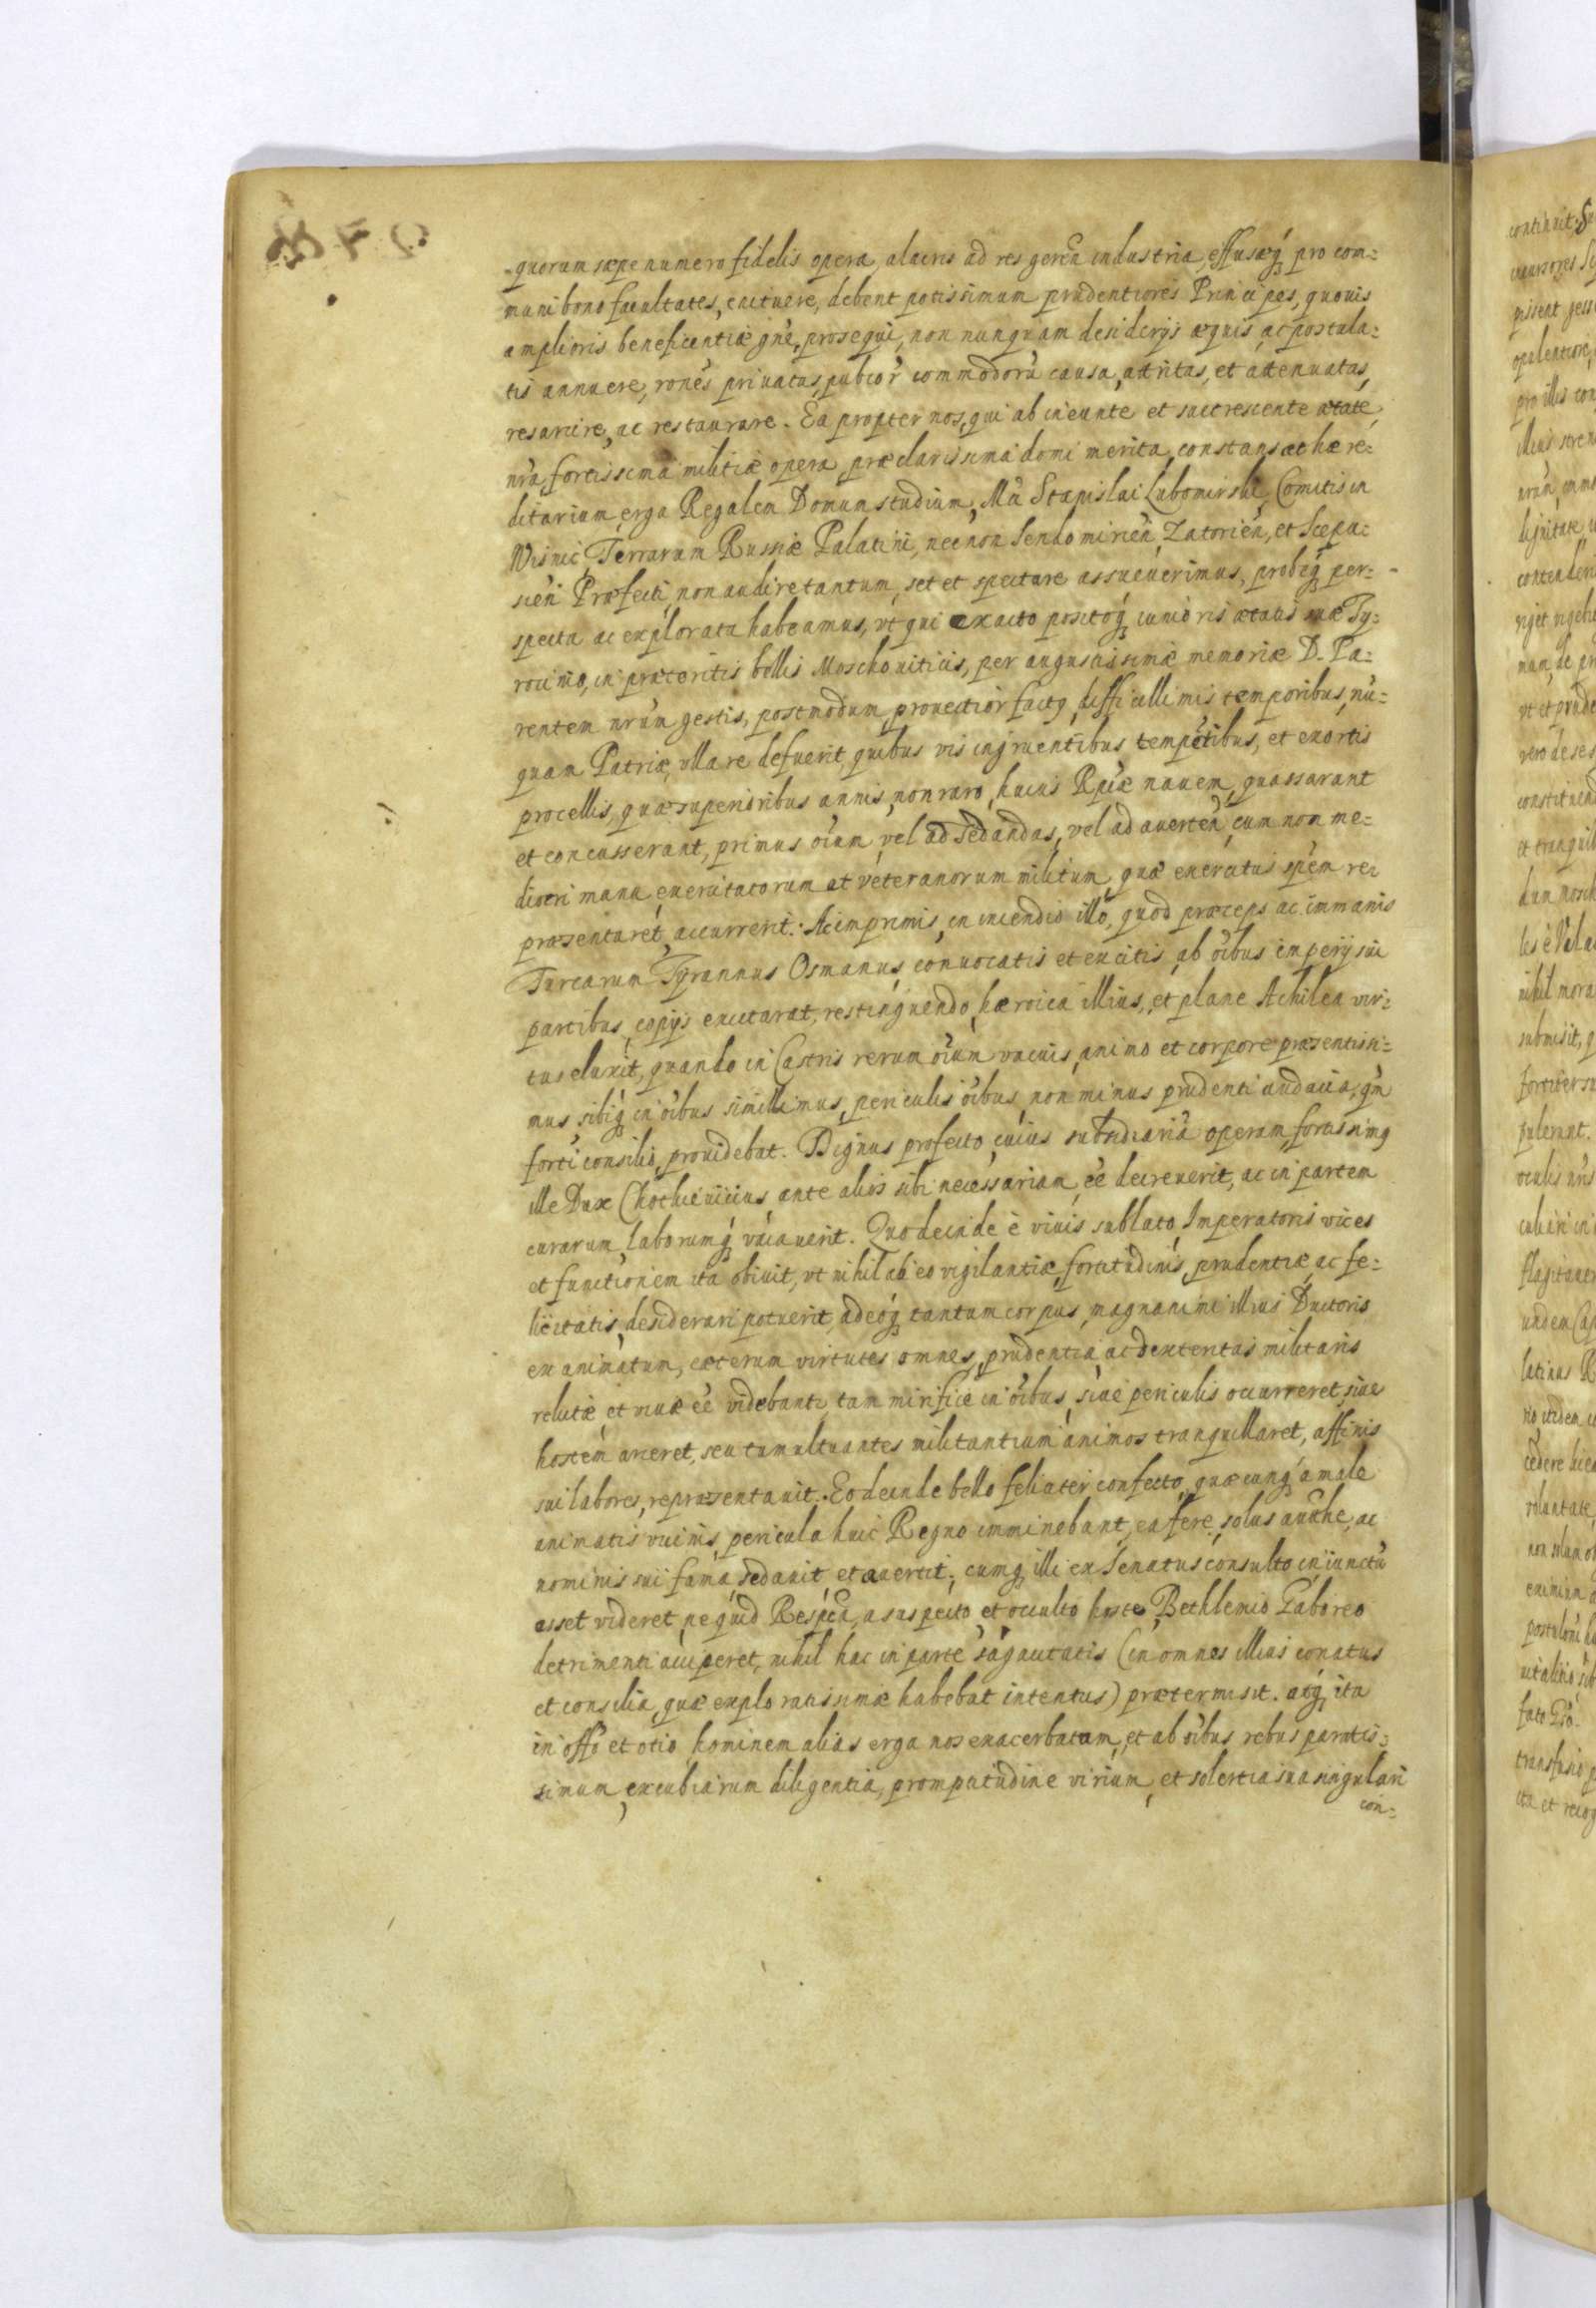 quorum sæpe numero fidelis opera, alacris ad res gereñ industria, effusæq́ pro com=
muni bono facultates, enituere, debent potissimum prudentiores Principes, quouis
amplioris beneficentiæ gñe, prosequi, non nunquam desiderijs æquis, ac postula=
tis annuere, rones priuatas, pubcor̃ commodorũ causa, attritas, et attenuatas,
resarcire, ac restaurare. Ea propter nos, qui ab ineunte et succrescente ætate,
nrã, fortissima militiæ opera, præclarissima domi merita, constans æt hære=
ditarium erga Regalem Domum studium, Mci Stanislai Lubomirski, Comitis in
Wisnic, Terrarum Russiæ Palatini, necnon Sendomirieñ, Zatorieñ, et Scepu=
sieñ Præfecti, non audire tantum, set et spectare assueuerimus, probeq́ per=
specta ac explorata habeamus, vt qui exacto positoq́ iunioris ætatis suæ Ty=
rocinio, in præteritis bellis Moschouiticis, per augustissimæ memoriæ D. Pa=
rentem nrũm gestis, postmodum prouectior fact9, difficillimis temporibus, nũ=
quam Patriæ, vlla re defuerit, quibus vis ingruentibus tempētibus, et exortis
procellis, quæ superioribus annis, non raro, huius Rpcæ nauem, quassarant
et concusserant, primus oium, vel ad sedandas, vel ad auerteñ, cum non me=
diocri manu, exercitatorum at veteranorum militum, quæ exercitus spẽm re=
præsentaret, accurrerit. Ac imprimis, in incendio illo, quod præceps ac immanis
Turcarum Tyrannus Osmanus, conuocatis et excitis, ab oibus imperij sui
partibus, copijs excitarat, restinguendo, hæroica illius, et plane Achilea vir=
tus eluxit, quando in Castris rerum oium vacuis, animo et corpore præsentissi=
mus, sibiq́ in oibus simillimus, periculis oibus, non minus prudenti audacia, qm̃
forti consilio, prouidebat. Dignus profecto, cuius subsidiariã operam, fortissim9
ille Dux Chotkieuicius, ante alios sibi necessariam, eẽ decreuerit, ac in partem
curarum, laborumq́ vocauerit. Quo deinde è viuis sublato, Imperatoris vices
et functionem ita obiuit, vt nihil ab eo vigilantiæ, fortitudinis, prudentiæ, ac fe=
licitatis, desiderari potuerit, adeoq́ tantum corpus, magnanimi illius Ductoris
exanimatum, cæterum virtutes omnes, prudentia ac dexteritas militaris
relictæ, et viuæ eẽ videbantr, tam mirifice in oibus, siue periculis occurreret, siue
hostem arceret, seu tumultuantes militantium animos tranquillaret, affinis
sui labores, repræsentauit. Eo deinde bello feliciter confecto, quæcunq́ a male
animatis vicinis, pericula huic Regno imminebant, ea fere, solus auct̃he, ac
nominis sui fama, sedauit, et auertit; cumq́ illi ex Senatus consulto, iniunctũ
esset videret, ne quid Respca, a suspecto, et occulto hoste, Bethlemio Gaboreo
detrimenti acciperet, nihil hac in parte sagacitatis (in omnes illius conatus
et consilia, quæ exploratissimæ habebat intentus) prætermisit. atq́ ita
in offo et otio hominem alias erga nos exacerbatum, et ab oibus rebus paratis=
simum, excubiarum diligentia, promptitudine virium, et solertia sua singulari
con=